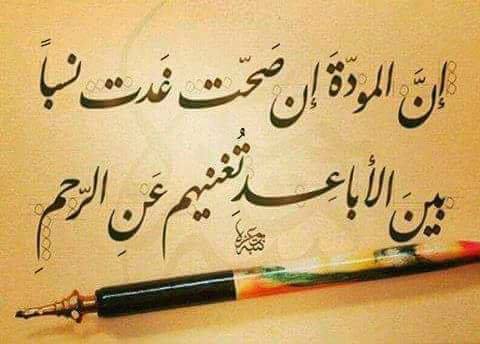 إنَّ المودّةَ إن صَحّت غَدت نسباً
بينَ الأباعِدِ تُغنيهم عَنِ الرّحمِ